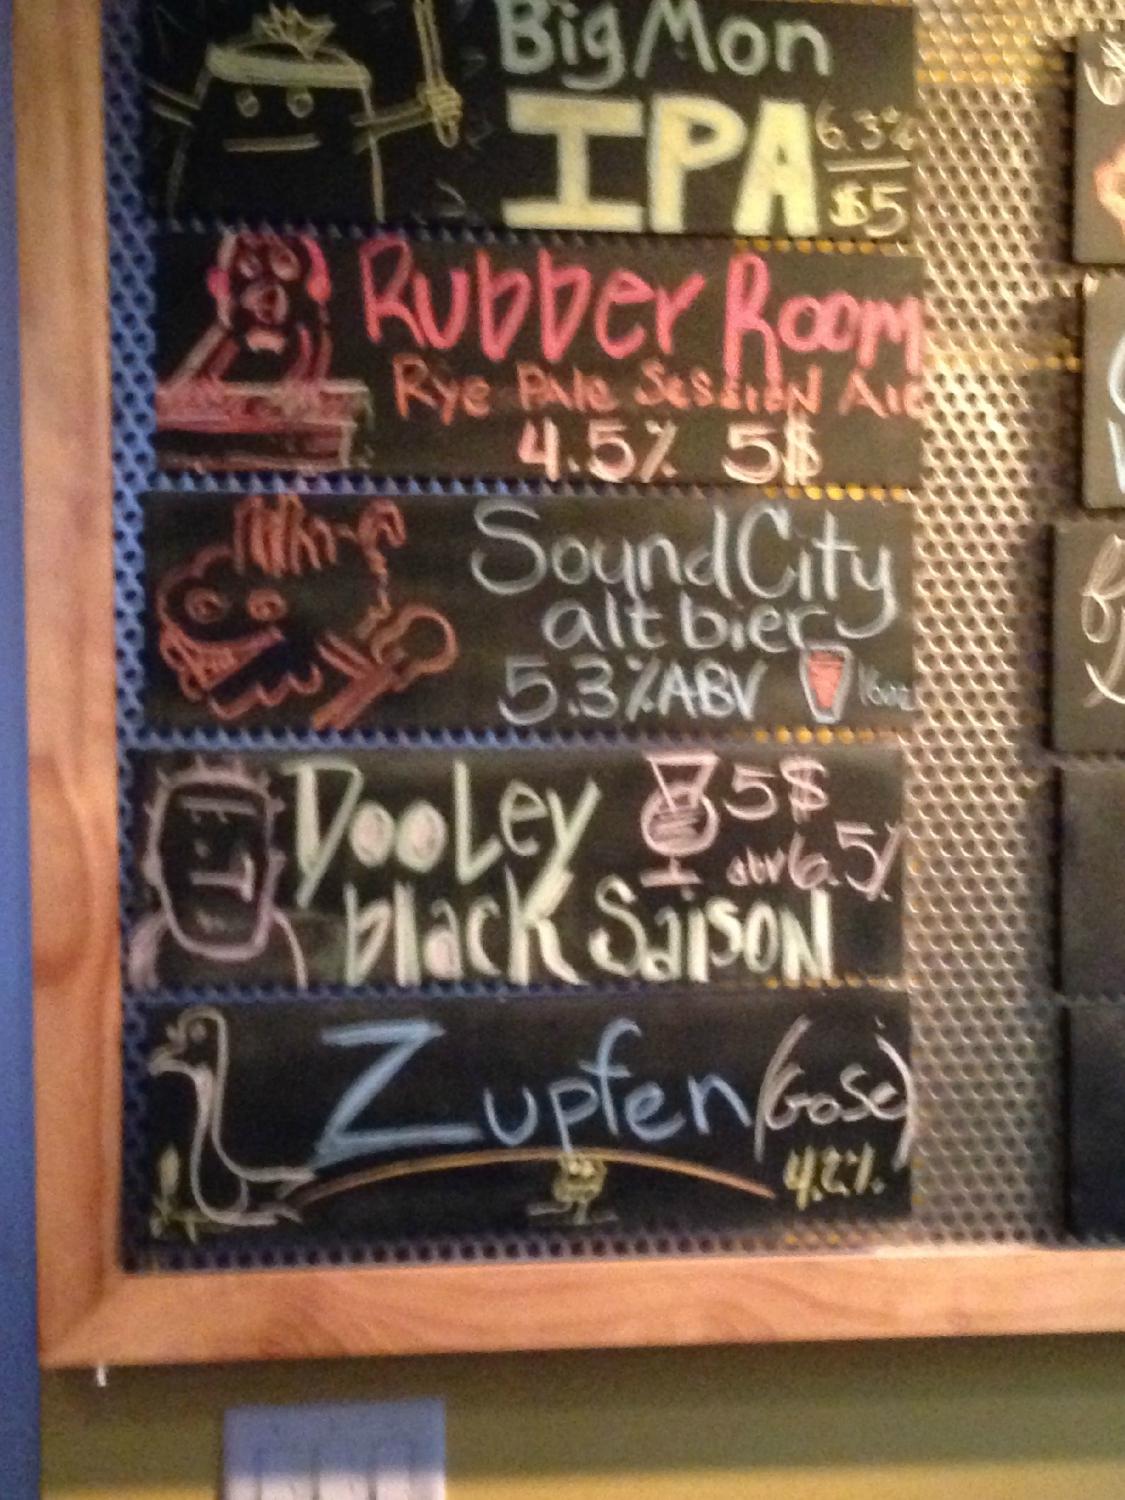 Big Mon
IPA
6.3%
$5
Rubber Room
Rye Pale Session Ale
4.5% 5$
Sound City
alt bier
5.3% ABV 16oz
Dooley
5$
abv 6.5%
black Saison
Zupfen (Gose)
4.2%